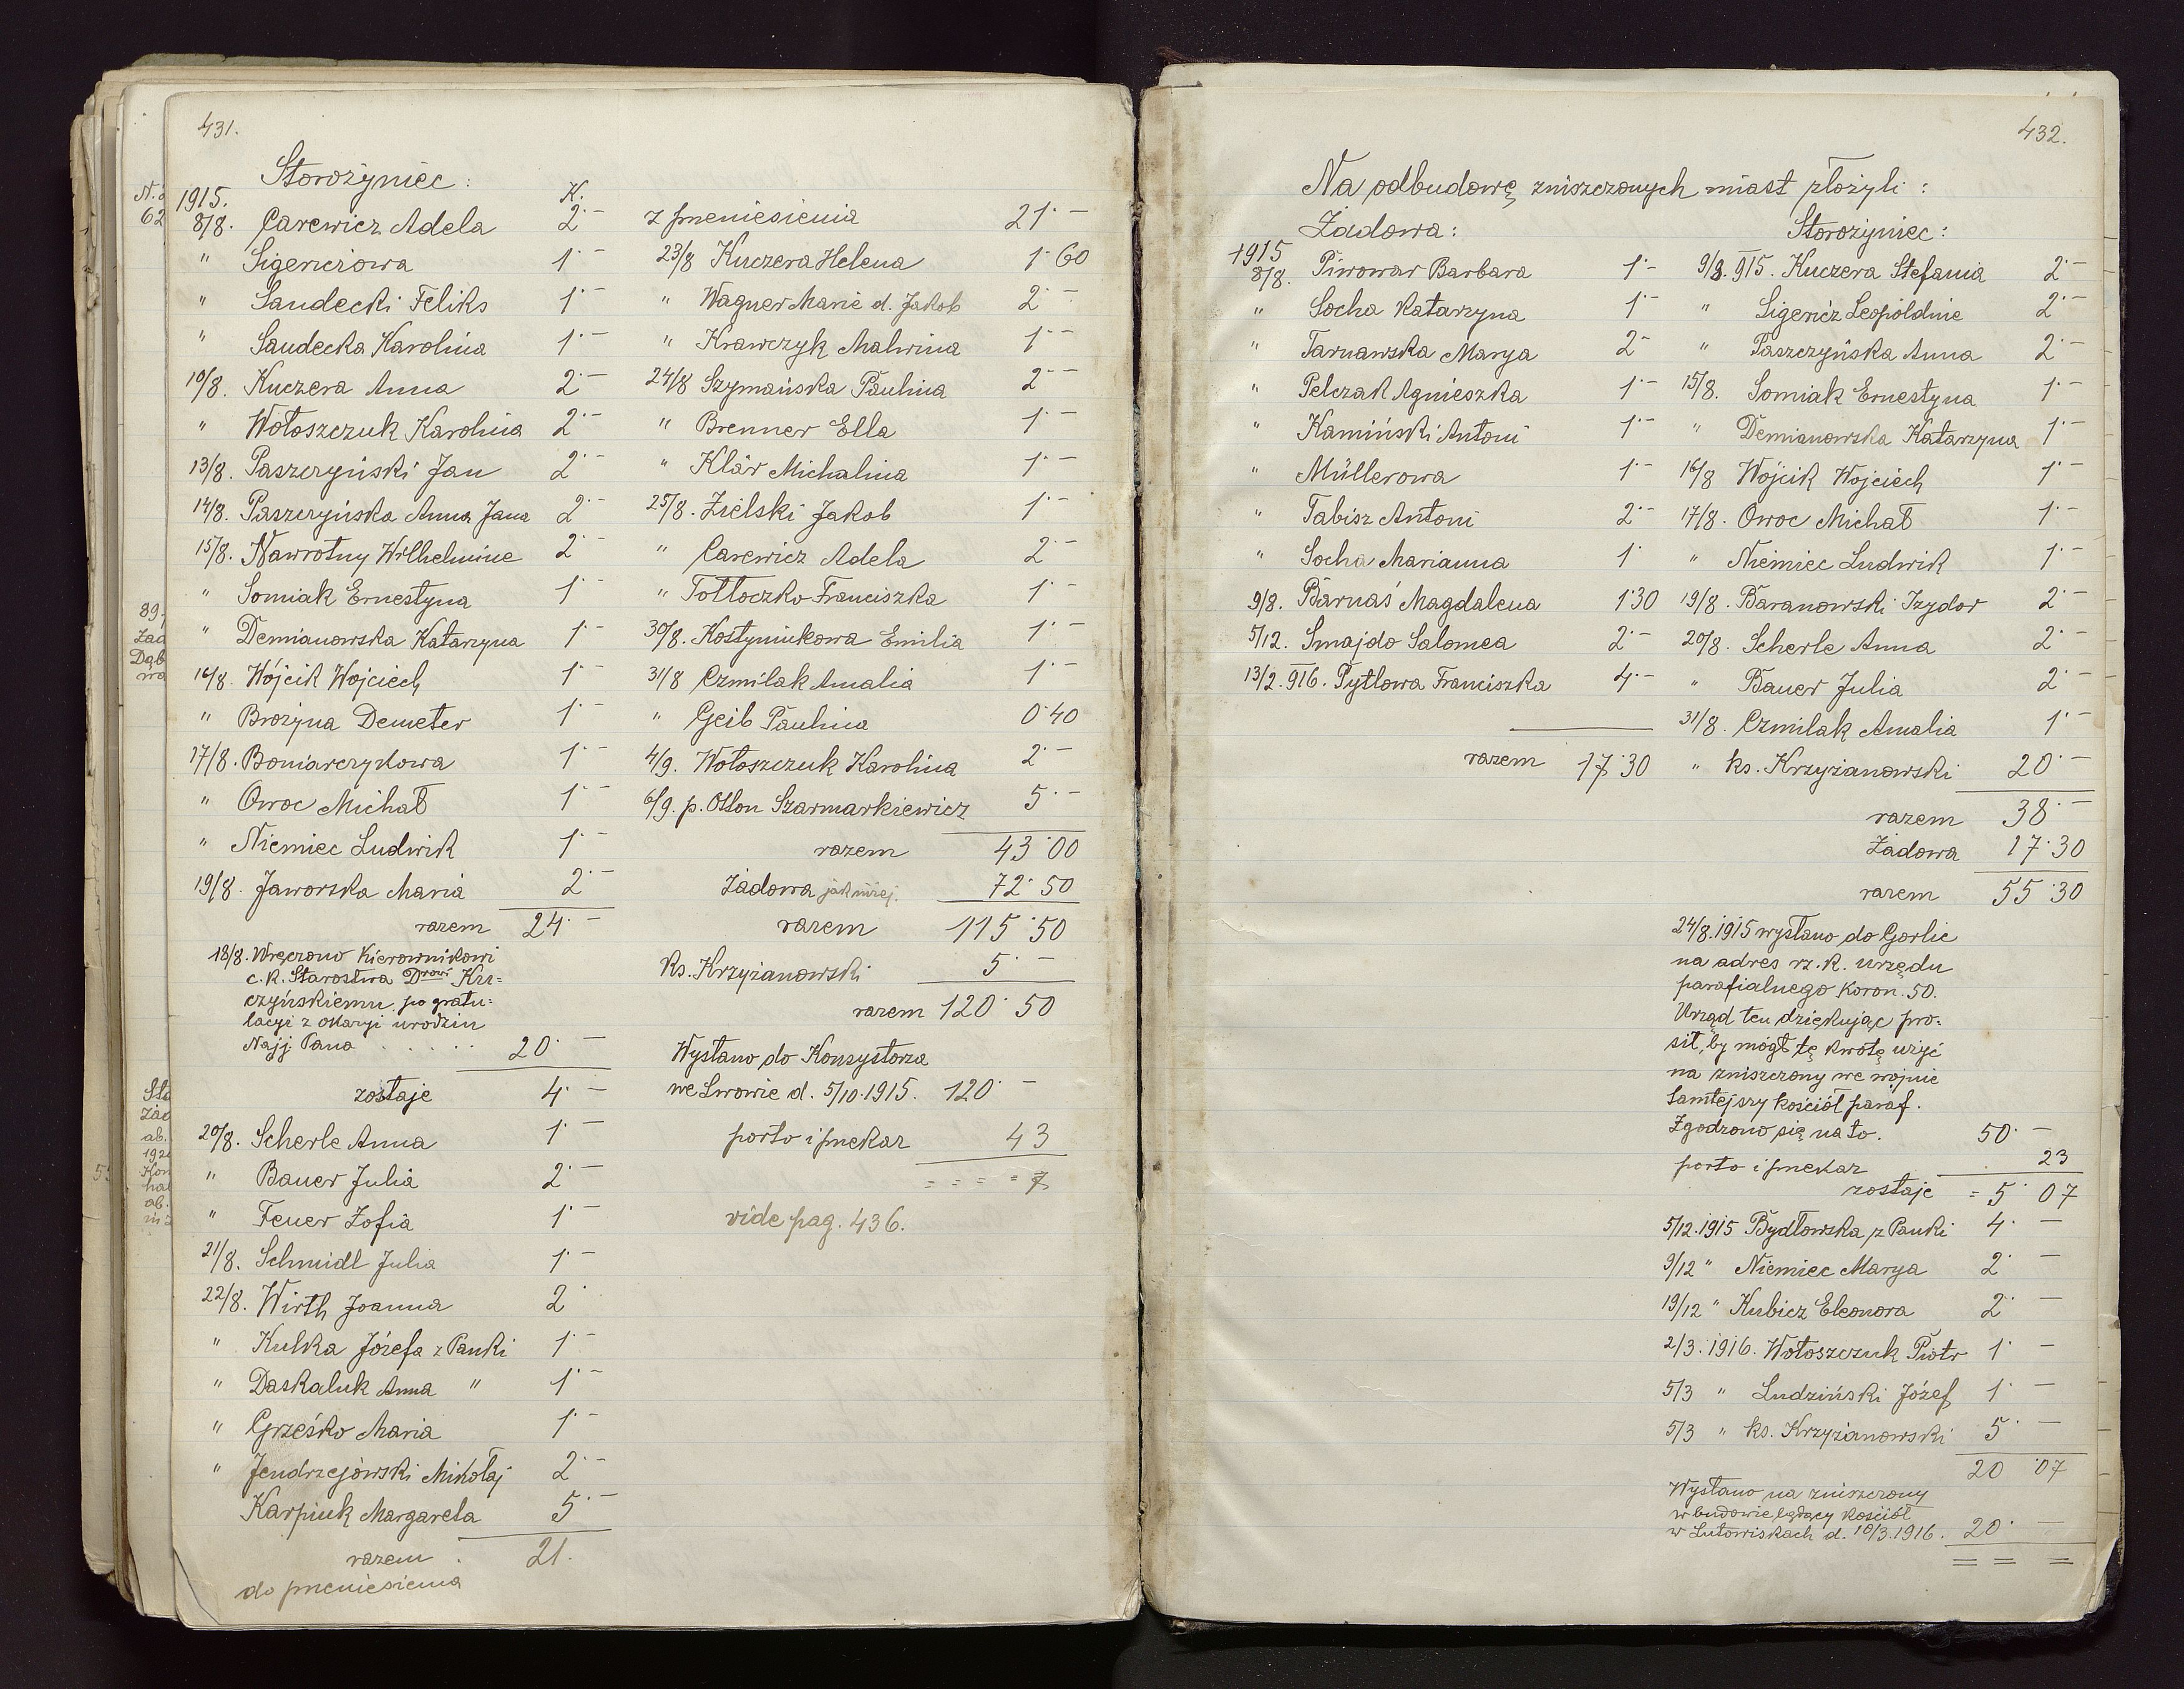 431.
Storożyniec:
1915. K.
8/8. Carewicz Adela 2·–
" Sigericzowa 1·–
" Saudecki Feliks 1·–
" Saudecka Karolina 1·–
10/8. Kuczera Anna 2·–
" Wołoszczuk Karolina 2·–
13/8. Paszczyński Jan 2·–
14/8. Paszczyńska Anna Jana 2·–
15/8. Nawrotny Wilhelmine 2·–
" Somiak Ernestyna 1·–
" Demianowska Katarzyna 1·–
16/8. Wójcik Wojciech 1·–
" Brożyna Demeter 1·–
17/8. Boniarczykowa 1·–
" Owoc Michał 1·–
" Niemiec Ludwik 1·–
19/8. Jaworska Maria 2·–
razem 24·–
18/8. Wręczono Kierownikowi
c.k. Starostwa Drowi Kru=
czyńskiemu po gratu=
lacyi z okazyi urodzin
Najj. Pana . . . . . 20·–
zostaje 4·–
20/8. Scherle Anna 1·–
" Bauer Julia 2·–
" Feuer Zofia 1·–
21/8. Schmidl Julia 1·–
22/8. Wirth Joanna 2·
" Kulka Józefa z Panki 1·–
" Daskaluk Anna " 1·–
" Grześko Maria 1·–
" Jendrzejówski Mikołaj 2·–
Karpiuk Margareta 5·–
razem 21.
do przeniesienia
z przeniesienia 21·–
23/8 Kuczera Helena 1·60
" Wagner Marie d. Jakob 2·–
" Krawczyk Malwina 1·–
24/8 Szymańska Paulina 2·–
" Brenner Ella 1·–
" Klär Michalina 1·–
25/8. Zielski Jakob 1·–
" Carewicz Adela 2·–
" Tołłoczko Franciszka 1·–
30/8. Kostyniukowa Emilia 1·–
31/8 Czmilak Amalia 1·–
" Geib Paulina 0·40
4/9. Wołoszczuk Karolina 2·–
6/9. p. Otton Szarmarkiewicz 5·–
razem 43·00
Żadowa jak niżej. 72·50
razem 115·50
ks. Krzyżanowski 5·–
razem 120·50
Wysłano do Konsystorza
we Lwowie d. 5/10.1915. 120·–
porto i przekaz 43
= = = = 7
vide pag. 436.
432.
Na odbudowę zniszczonych miast złożyli:
Żadowa:
1915
8/8. Piwowar Barbara 1·–
" Socha Katarzyna 1·–
" Tarnawska Marya 2·–
" Pelczak Agnieszka 1·–
" Kamiński Antoni 1·–
" Müllerowa 1·–
" Tabisz Antoni 2·–
" Socha Marianna 1·
9/8. Barnaś Magdalena 1·30
5/12. Smajdo Salomea 2·–
13/2.916. Pytlowa Franciszka 4·–
razem 17·30
Storożyniec:
9/8.915. Kuczera Stefania 2·–
" Sigericz Leopoldine 2·–
" Paszczyńska Anna 2·–
15/8. Somiak Ernestyna 1·–
" Demianowska Katarzyna 1·–
16/8 Wójcik Wojciech 1·–
17/8. Owoc Michał 1·–
" Niemiec Ludwik 1·–
19/8. Baranowski Izydor 2·–
20/8. Scherle Anna 2·–
" Bauer Julia 2·–
31/8. Czmilak Amalia 1·–
" ks. Krzyżanowski 20·–
razem 38·–
Żadowa 17·30
razem 55·30
24/8.1915 wysłano do Gorlic
na adres rz.k. urzędu
parafialnego Koron. 50.
Urząd ten dziękując pro=
sił, by mógł tę kwotę użyć
na zniszczony we wojnie
tamtejszy kościół paraf.
Zgodzono się na to. 50·–
porto i przekaz 23
zostaje = 5·07
5/12.1915 Bydłowska z Panki 4·–
9/12 " Niemiec Marya 2·–
19/12 " Kubicz Eleonora 2·–
2/3.1916. Wołoszczuk Piotr 1·–
5/3 " Ludziński Józef 1·–
5/3 " ks. Krzyżanowski 5·–
20·07
Wysłano na zniszczony
w budowie będący kościół
w Lutowiskach d. 10/3.1916. 20·–
= = =